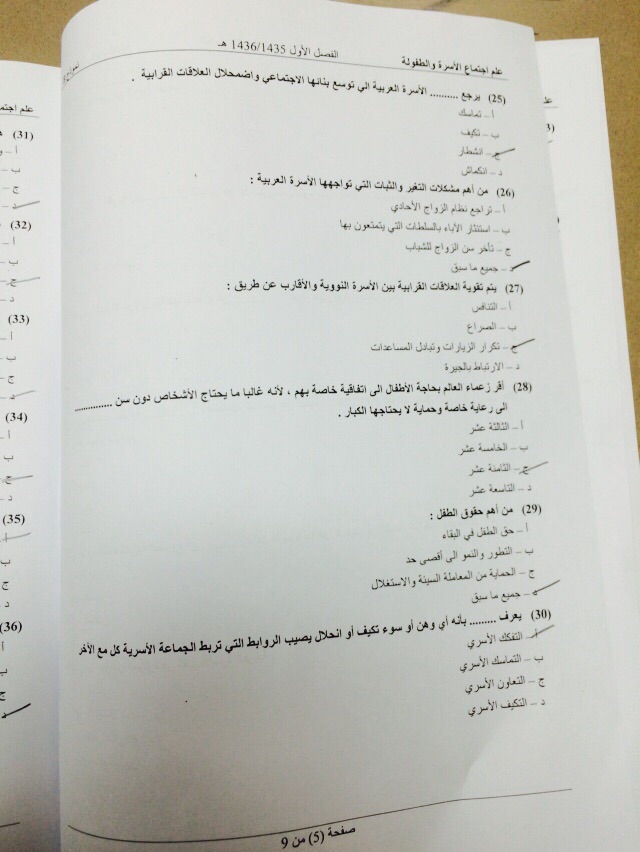 علم اجتماع الأسرة والطفولة
الفصل الأول 1436/1435 هـ
(25) يرجع .......... الأسرة العربية الي توسع بنائها الاجتماعي واضمحلال العلاقات القرابية .
أ – تماسك
ب – تكيف
ج – انشطار
د – انكماش
(26) من أهم مشكلات التغير والثبات التي تواجهها الأسرة العربية :
أ – تراجع نظام الزواج الأحادي
ب – استئثار الأباء بالسلطات التي يتمتعون بها
ج – تأخر سن الزواج للشباب
د – جميع ما سبق
(27) يتم تقوية العلاقات القرابية بين الأسرة النووية والأقارب عن طريق :
أ – التنافس
ب – الصراع
ج – تكرار الزيارات وتبادل المساعدات
د – الارتباط بالجيرة
(28) أقر زعماء العالم بحاجة الأطفال الى اتفاقية خاصة بهم ، لأنه غالبا ما يحتاج الأشخاص دون سن .............
الى رعاية خاصة وحماية لا يحتاجها الكبار .
أ – الثالثة عشر
ب – الخامسة عشر
ج – الثامنة عشر
د – التاسعة عشر
(29) من أهم حقوق الطفل :
أ – حق الطفل في البقاء
ب – التطور والنمو الى أقصى حد
ج – الحماية من المعاملة السيئة والاستغلال
د – جميع ما سبق
(30) يعرف ......... بأنه أي وهن أو سوء تكيف أو انحلال يصيب الروابط التي تربط الجماعة الأسرية كل مع الآخر
أ – التفكك الأسري
ب – التماسك الأسري
ج – التعاون الأسري
د – التكيف الأسري
صفحة (5) من 9
(31)
أ –
ب –
ج –
د –
(32)
أ –
ب –
ج –
د –
(33)
أ –
ب –
ج –
د –
(34)
أ –
ب –
ج –
د –
(35)
أ –
ب
ج
د
(36)
أ
ب
ج
د